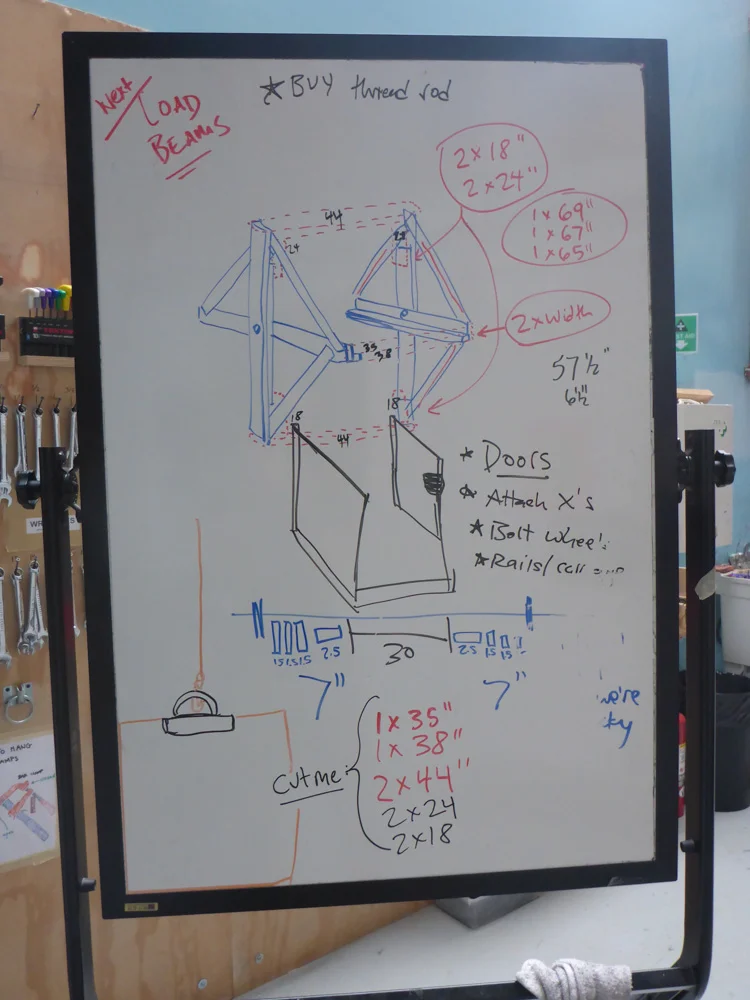 Next
LOAD
BEAMS
* BUY thread rod
2 x 18"
2 x 24"
1 x 69"
1 x 67"
1 x 65"
44
24
2 x Width
35
38
57 ½"
6 ½"
18
18
44
* Doors
* Attach X's
* Bolt whee
* Rails/
1.5 1.5 1.5
2.5
30
2.5
1.5
1.5
7"
7"
we're
cut me:
1 x 35"
1 x 38"
2 x 44"
2 x 24
2 x 18